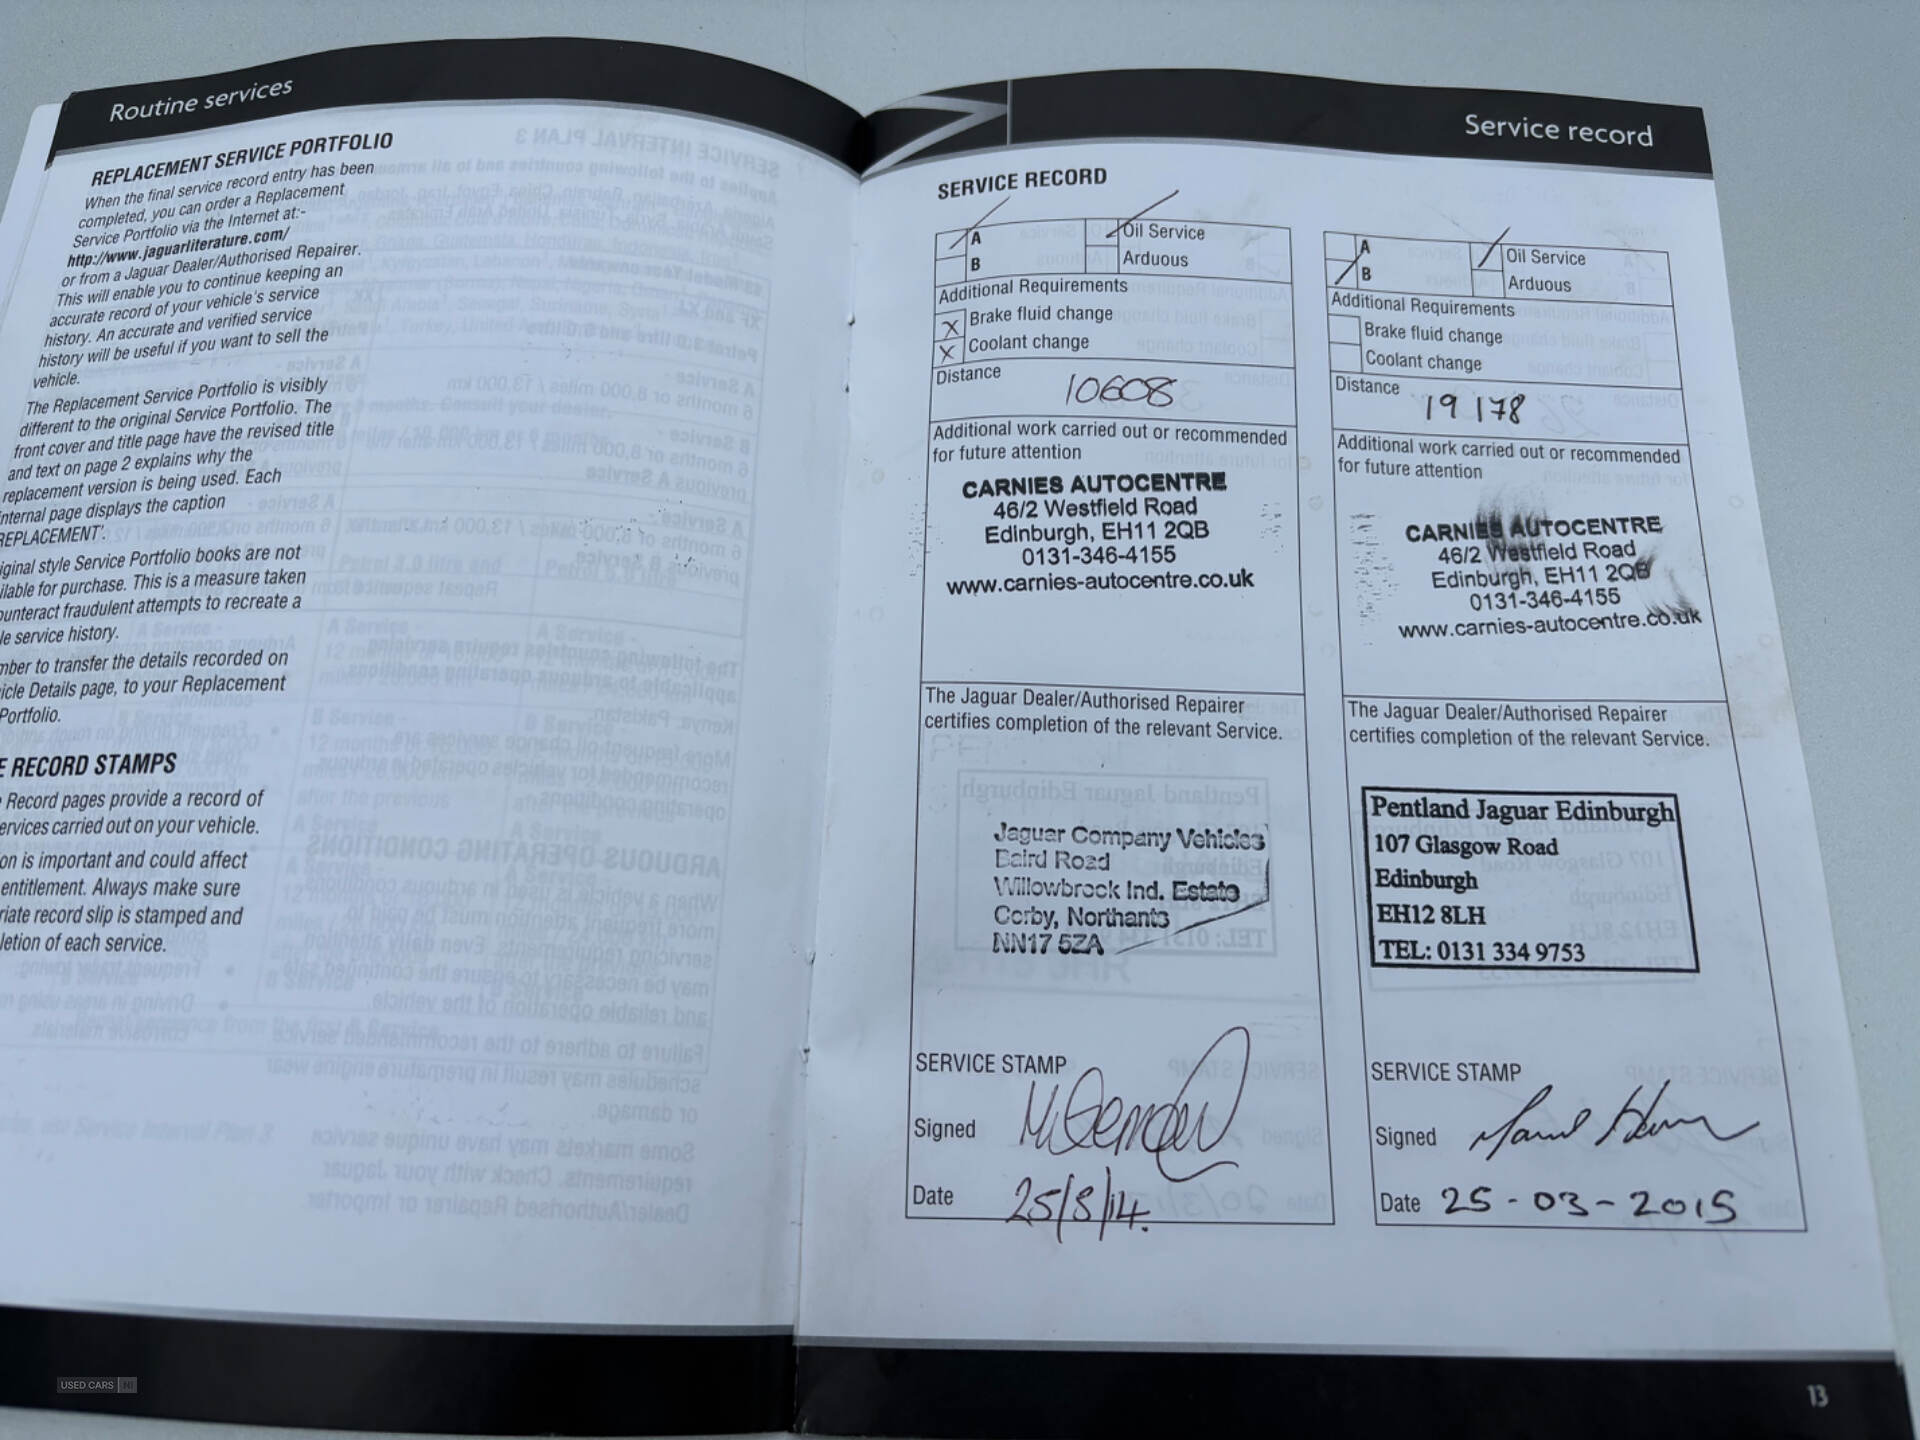 Routine services
REPLACEMENT SERVICE PORTFOLIO
When the final service record entry has been
completed, you can order a Replacement
Service Portfolio via the Internet at:-
http://www.jaguarliterature.com/
or from a Jaguar Dealer/Authorised Repairer.
This will enable you to continue keeping an
accurate record of your vehicle's service
history. An accurate and verified service
history will be useful if you want to sell the
vehicle.
The Replacement Service Portfolio is visibly
different to the original Service Portfolio. The
front cover and title page have the revised title
and text on page 2 explains why the
replacement version is being used. Each
nternal page displays the caption
REPLACEMENT'.
iginal style Service Portfolio books are not
ilable for purchase. This is a measure taken
ounteract fraudulent attempts to recreate a
le service history.
mber to transfer the details recorded on
icle Details page, to your Replacement
Portfolio.
E RECORD STAMPS
Record pages provide a record of
ervices carried out on your vehicle.
on is important and could affect
entitlement. Always make sure
riate record slip is stamped and
letion of each service.
Service record
SERVICE RECORD
A Oil Service
B Arduous
Additional Requirements
X Brake fluid change
X Coolant change
Distance 10608
Additional work carried out or recommended
for future attention
CARNIES AUTOCENTRE
46/2 Westfield Road
Edinburgh, EH11 2QB
0131-346-4155
www.carnies-autocentre.co.uk
The Jaguar Dealer/Authorised Repairer
certifies completion of the relevant Service.
Jaguar Company Vehicles
Baird Road
Willowbrook Ind. Estate
Corby, Northants
NN17 5ZA
SERVICE STAMP
Signed
Date 25/3/14.
A Oil Service
B Arduous
Additional Requirements
Brake fluid change
Coolant change
Distance 19178
Additional work carried out or recommended
for future attention
CARNIES AUTOCENTRE
46/2 Westfield Road
Edinburgh, EH11 2QB
0131-346-4155
www.carnies-autocentre.co.uk
The Jaguar Dealer/Authorised Repairer
certifies completion of the relevant Service.
Pentland Jaguar Edinburgh
107 Glasgow Road
Edinburgh
EH12 8LH
TEL: 0131 334 9753
SERVICE STAMP
Signed
Date 25-03-2015
13
USED CARS NI